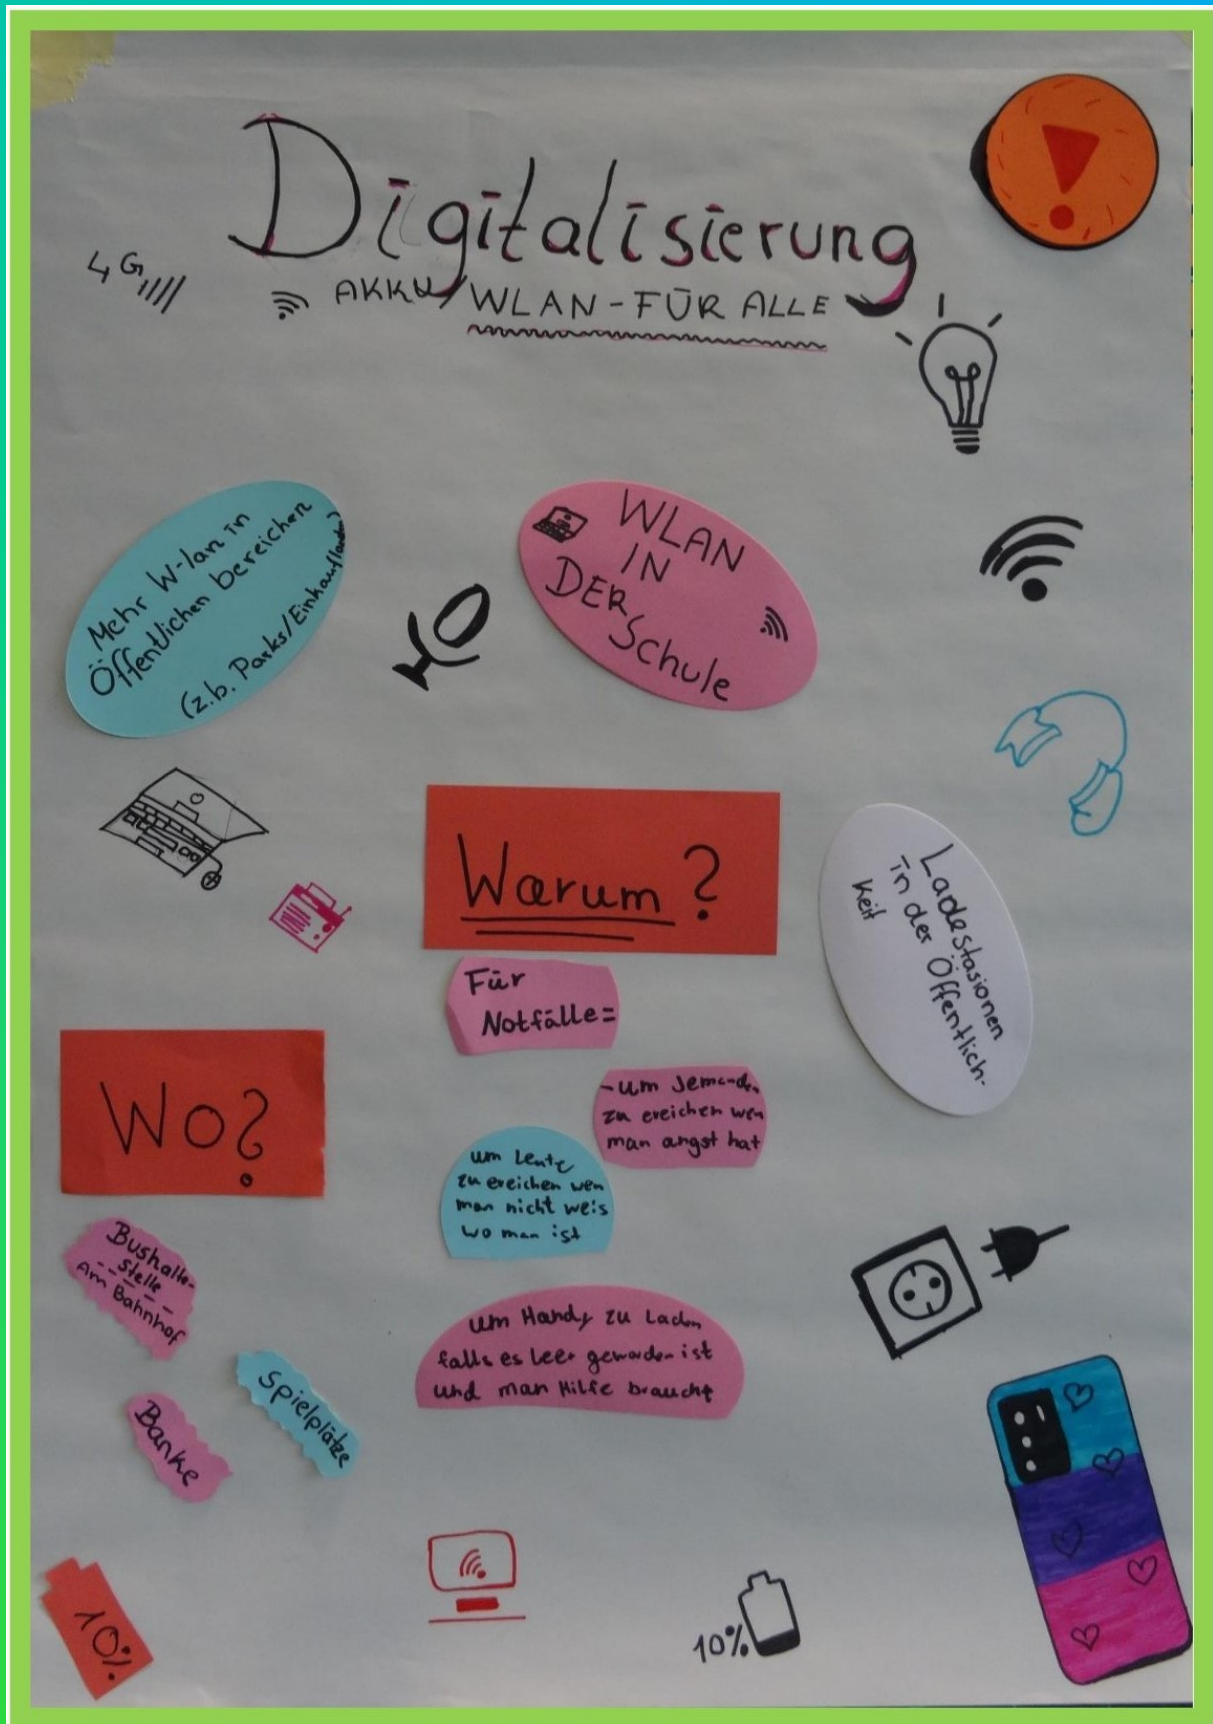 Digitalisierung
4G
AKKU/WLAN-FÜR ALLE
Mehr W-lan in
Öffentlichen bereichen
(z.b. Parks/Einkaufläden)
WLAN
IN
DER
Schule
Warum?
Ladestasionen
in der Öffentlich-
keit
Für
Notfälle=
-um Jemanden
zu ereichen wen
man angst hat
um Leute
zu ereichen wen
man nicht weis
wo man ist
um Handy zu Laden
falls es leer geworden ist
und man Hilfe braucht
Wo?
Bushalte-
stelle
Am Bahnhof
Spielplätze
Banke
10%
10%